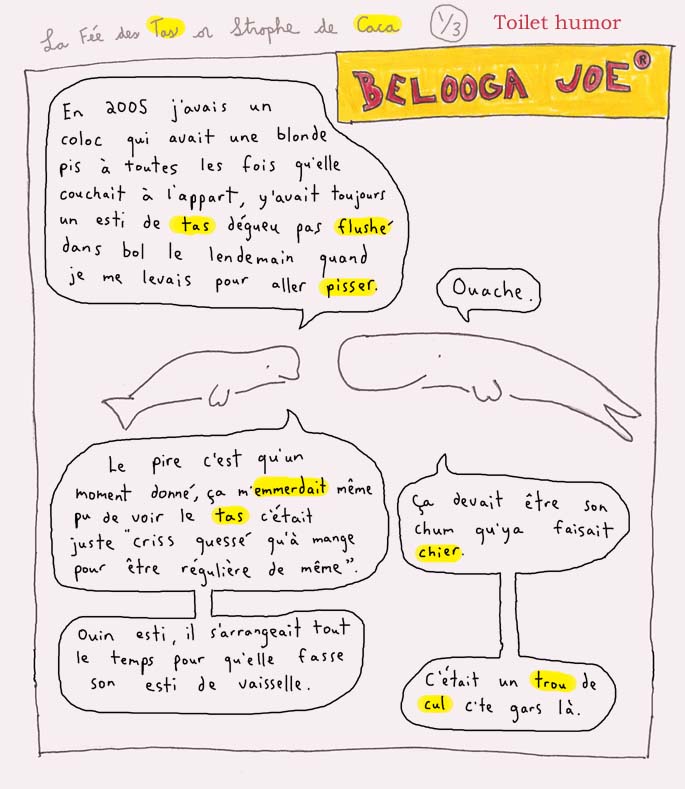 La Fée des Tas or Strophe de Caca 1/3 Toilet humor
BELOOGA JOE®
En 2005 j'avais un
coloc qui avait une blonde
pis à toutes les fois qu'elle
couchait à l'appart, y'avait toujours
un esti de tas dégueu pas flushé
dans bol le lendemain quand
je me levais pour aller pisser.
Ouache.
Le pire c'est qu'un
moment donné, ça m'emmerdait même
pu de voir le tas c'était
juste "criss quessé qu'à mange
pour être régulière de même".
Ça devait être son
chum qu'ya faisait
chier.
Ouin esti, il s'arrangeait tout
le temps pour qu'elle fasse
son esti de vaisselle.
C'était un trou de
cul c'te gars là.